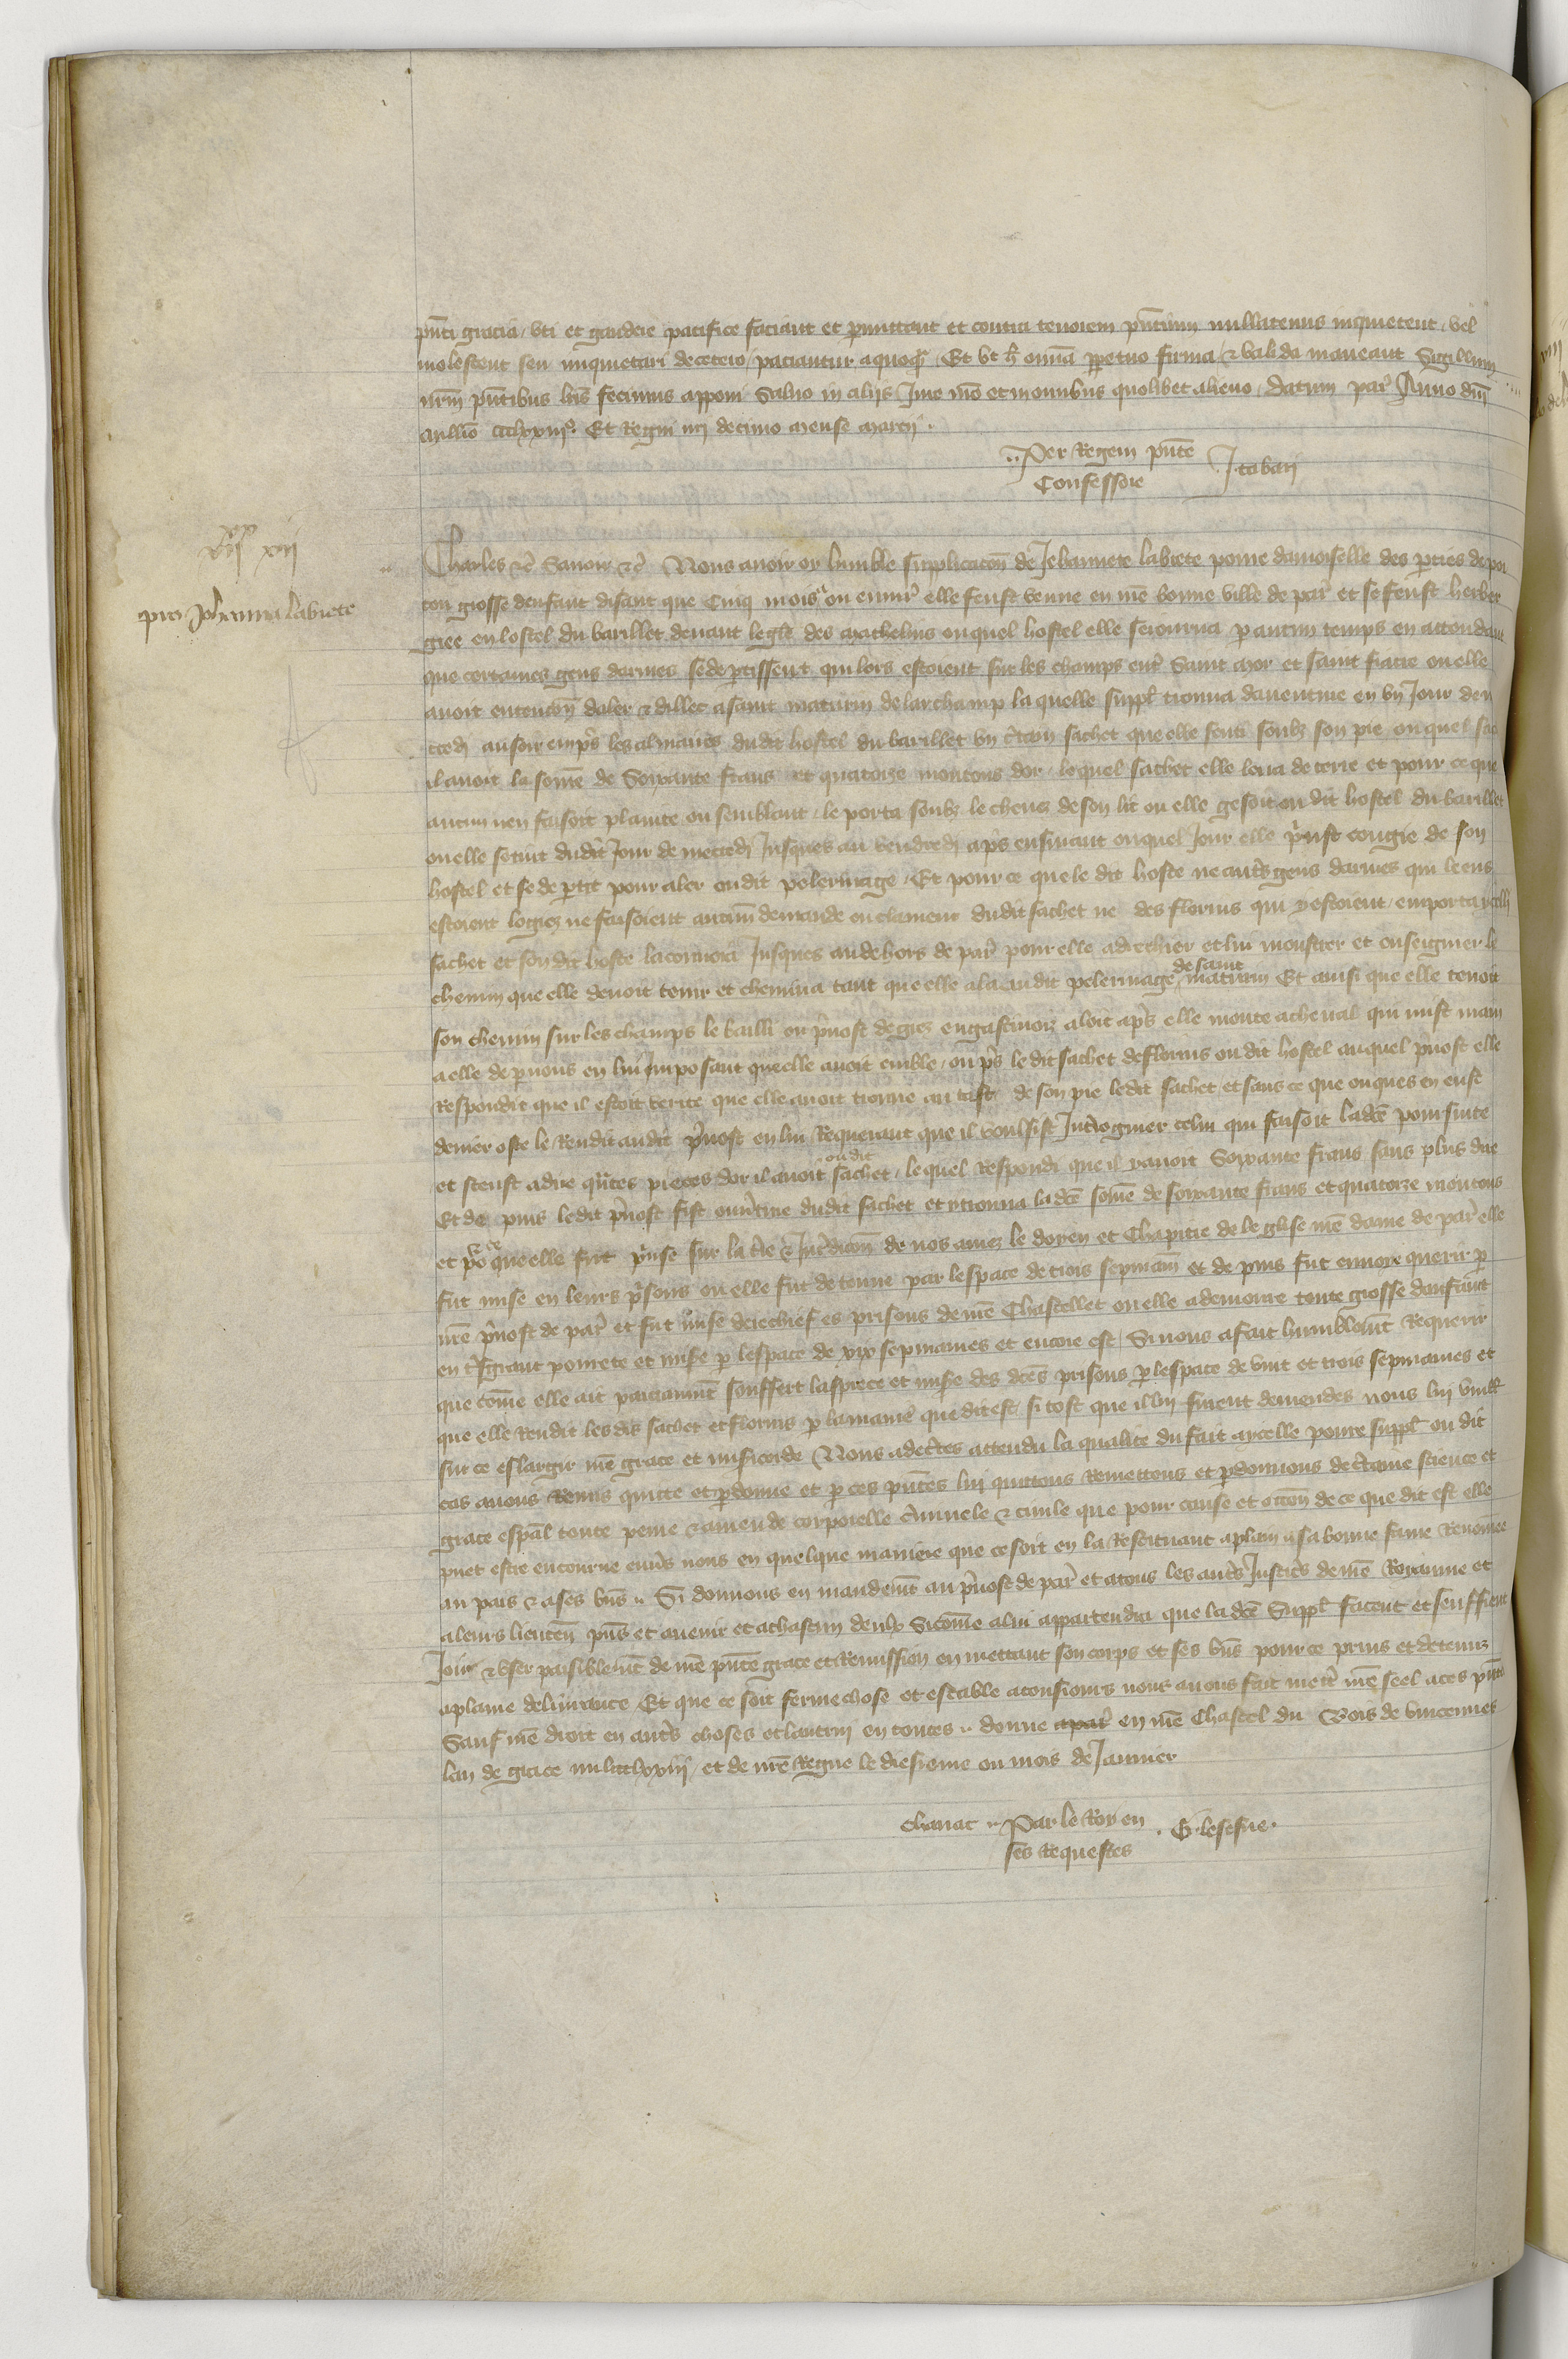 pñti gracia / vti et gaudere pacifice faciant et permittant et contra tenorem pñtium nullatenus inquietent / vel
molestent seu inquietari decetero / paciantur aquoqz Et vt h omia perpetuo firma / & valida maneant Sigillum
nrm pñtibus lris fecimus apponi Saluo in alijs Jure nro et in omnibus quolibet alieno / datum par Anno dñi
Millio ccclxxiijº Et Regni nri decimo mense marcij
Per Regem pñte
Confessore
J tabari
vjxx xij
pro Johanna labiete
Charles &c Sauoir &c Nous auoir oy humble supplicacõn de Jehannete labiete poure damoiselle des parties de poi
tou grosse denfant disant que Cinq mois a ou enuir elle feust venue en nre bonne ville de par et se feust herber
giee en lostel du barillet deuant legle des mathelins ouquel hostel elle seiourna par aucun temps en attendant
que certaines gens darmes se departissent qui lors estoient sur les champs entr Saint mor et saint fiacre ou elle
auoit entencion daler & dillec a saint maturin de larchamp la quelle suppl trouua dauenture en vn Jour de mer
credi au soir empres les almaires dudit hostel du barillet vn certain sachet que elle senti soubz son pie ouquel sac
il auoit la some de Soixante frans et quatorze moutons dor / lequel sachet elle leua de terre et pour ce que
aucun nen faisoit plainte ou semblant / le porta soubz le cheuez de son lit ou elle gesoit ou dit hostel du barillet
ou elle se tint dudit Jour de mercredi Jusques au vendredi apres ensuiuant ouquel Jour elle prinst congie de son
hostel et se departit pour aler oudit pelerinage / Et pour ce que le dit hoste ne autres gens darmes qui leens
estoient logiez ne faisoient aucun demande ou clameur dudit sachet ne des florins qui y estoient / emporta ycelli
sachet et son dit hoste la conuoia Jusques au dehors de par pour elle adrechier et lui monstrer et enseignier le
chemin que elle deuoit tenir et chemina tant que elle ala audit pelerinage de saint maturin Et ainsi que elle tenoit
son chemin sur les champs le bailli ou preuost de giez en gastinoiz aloit apres elle monte a cheual qui mist main
a elle de par nous en lui Jmposant que elle auoit emble / ou pris le dit sachet de florins ou dit hostel auquel preuost elle
Respondit que il estoit verite que elle auoit trouue au tast de son pie ledit sachet et sans ce que onques en eust
denier oste le Rendit audit preuost en lui Requerant que il voulsist Interroguer celui qui faisoit ladce poursuite
et sceust a dire quetes pieces dor il auoit oudit sachet / lequel Respondi que il y auoit Soixante frans sans plus dire
Et de puis ledit preuost fist ouuerture dudit sachet et y trouua la dce some de soixante frans et quatorze moutons
et pour ce que elle fut prinse sur la terre & Jurdicon de nos amez le doyen et Chapitre de leglise nre dame de par elle
fut mise en leurs prisons ou elle fut detenue par lespace de trois sepmain et de puis fut enuoie querir par
nre preuost de par et fut mise derechief es prisons de nre Chastellet ou elle a demoure toute grosse denfant
en tres grant pourete et misere par lespace de xix sepmaines et encore est / Si nous a fait humblement Requerir
que come elle ait paciamment souffert lasprece et misere des dces prisons par lespace de vint et trois sepmaines et
que elle Rendit les dis sachet et florins par la manie que dit est si tost que il lui furent demandes nous lui vueill
sur ce eslargir nre grace et misericorde Nous adecertes attendu la qualite du fait a ycelle poure suppl ou dit
cas auons Remis quicte et pardonne et par ces pñtes lui quittons Remettons et pardonnons de certaine science et
grace espal toute peine & amende corporelle criminele & ciuile que pour cause et occon de ce que dit est elle
puet estre encourue enuers nous en quelque maniere que ce soit en la Restituant a plain a sa bonne fame Renomee
au pais & a ses bns Si donnons en mandement au preuost de par et a tous les autres Justiciers de nre Royaume et
a leurs lieuten pns et auenir et a chascun deulx Sicome a lui appartendra que la dce Suppl facent et seuffrent
Joir & vser paisiblement de nre pñte grace et Remission en mettant son corps et ses bns pour ce prins et detenuz
a plaine deliurance Et que ce soit ferme chose et estable a tousiours nous auons fait mettre nre seel a ces pñtes
Sauf nre droit en autres choses et lautrui en toutes donne apar en nre Chastel du Bois de vincennes
lan de grace mil ccclxxiij / et de nre Regne le diesieme ou mois de Januier
chanac Par le Roy en
ses Requestes
G. lefesue